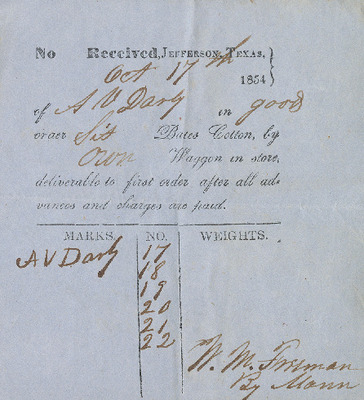 No Received, Jefferson, Texas,
Oct 17th 1854
of A V Darby in good
order Six Bales Cotton, by
Own Waggon in store,
deliverable to first order after all ad-
vances and charges are paid.
MARKS. NO. WEIGHTS.
A V Darby 17
18
19
20
21
22
W. M. Freeman
By Mann